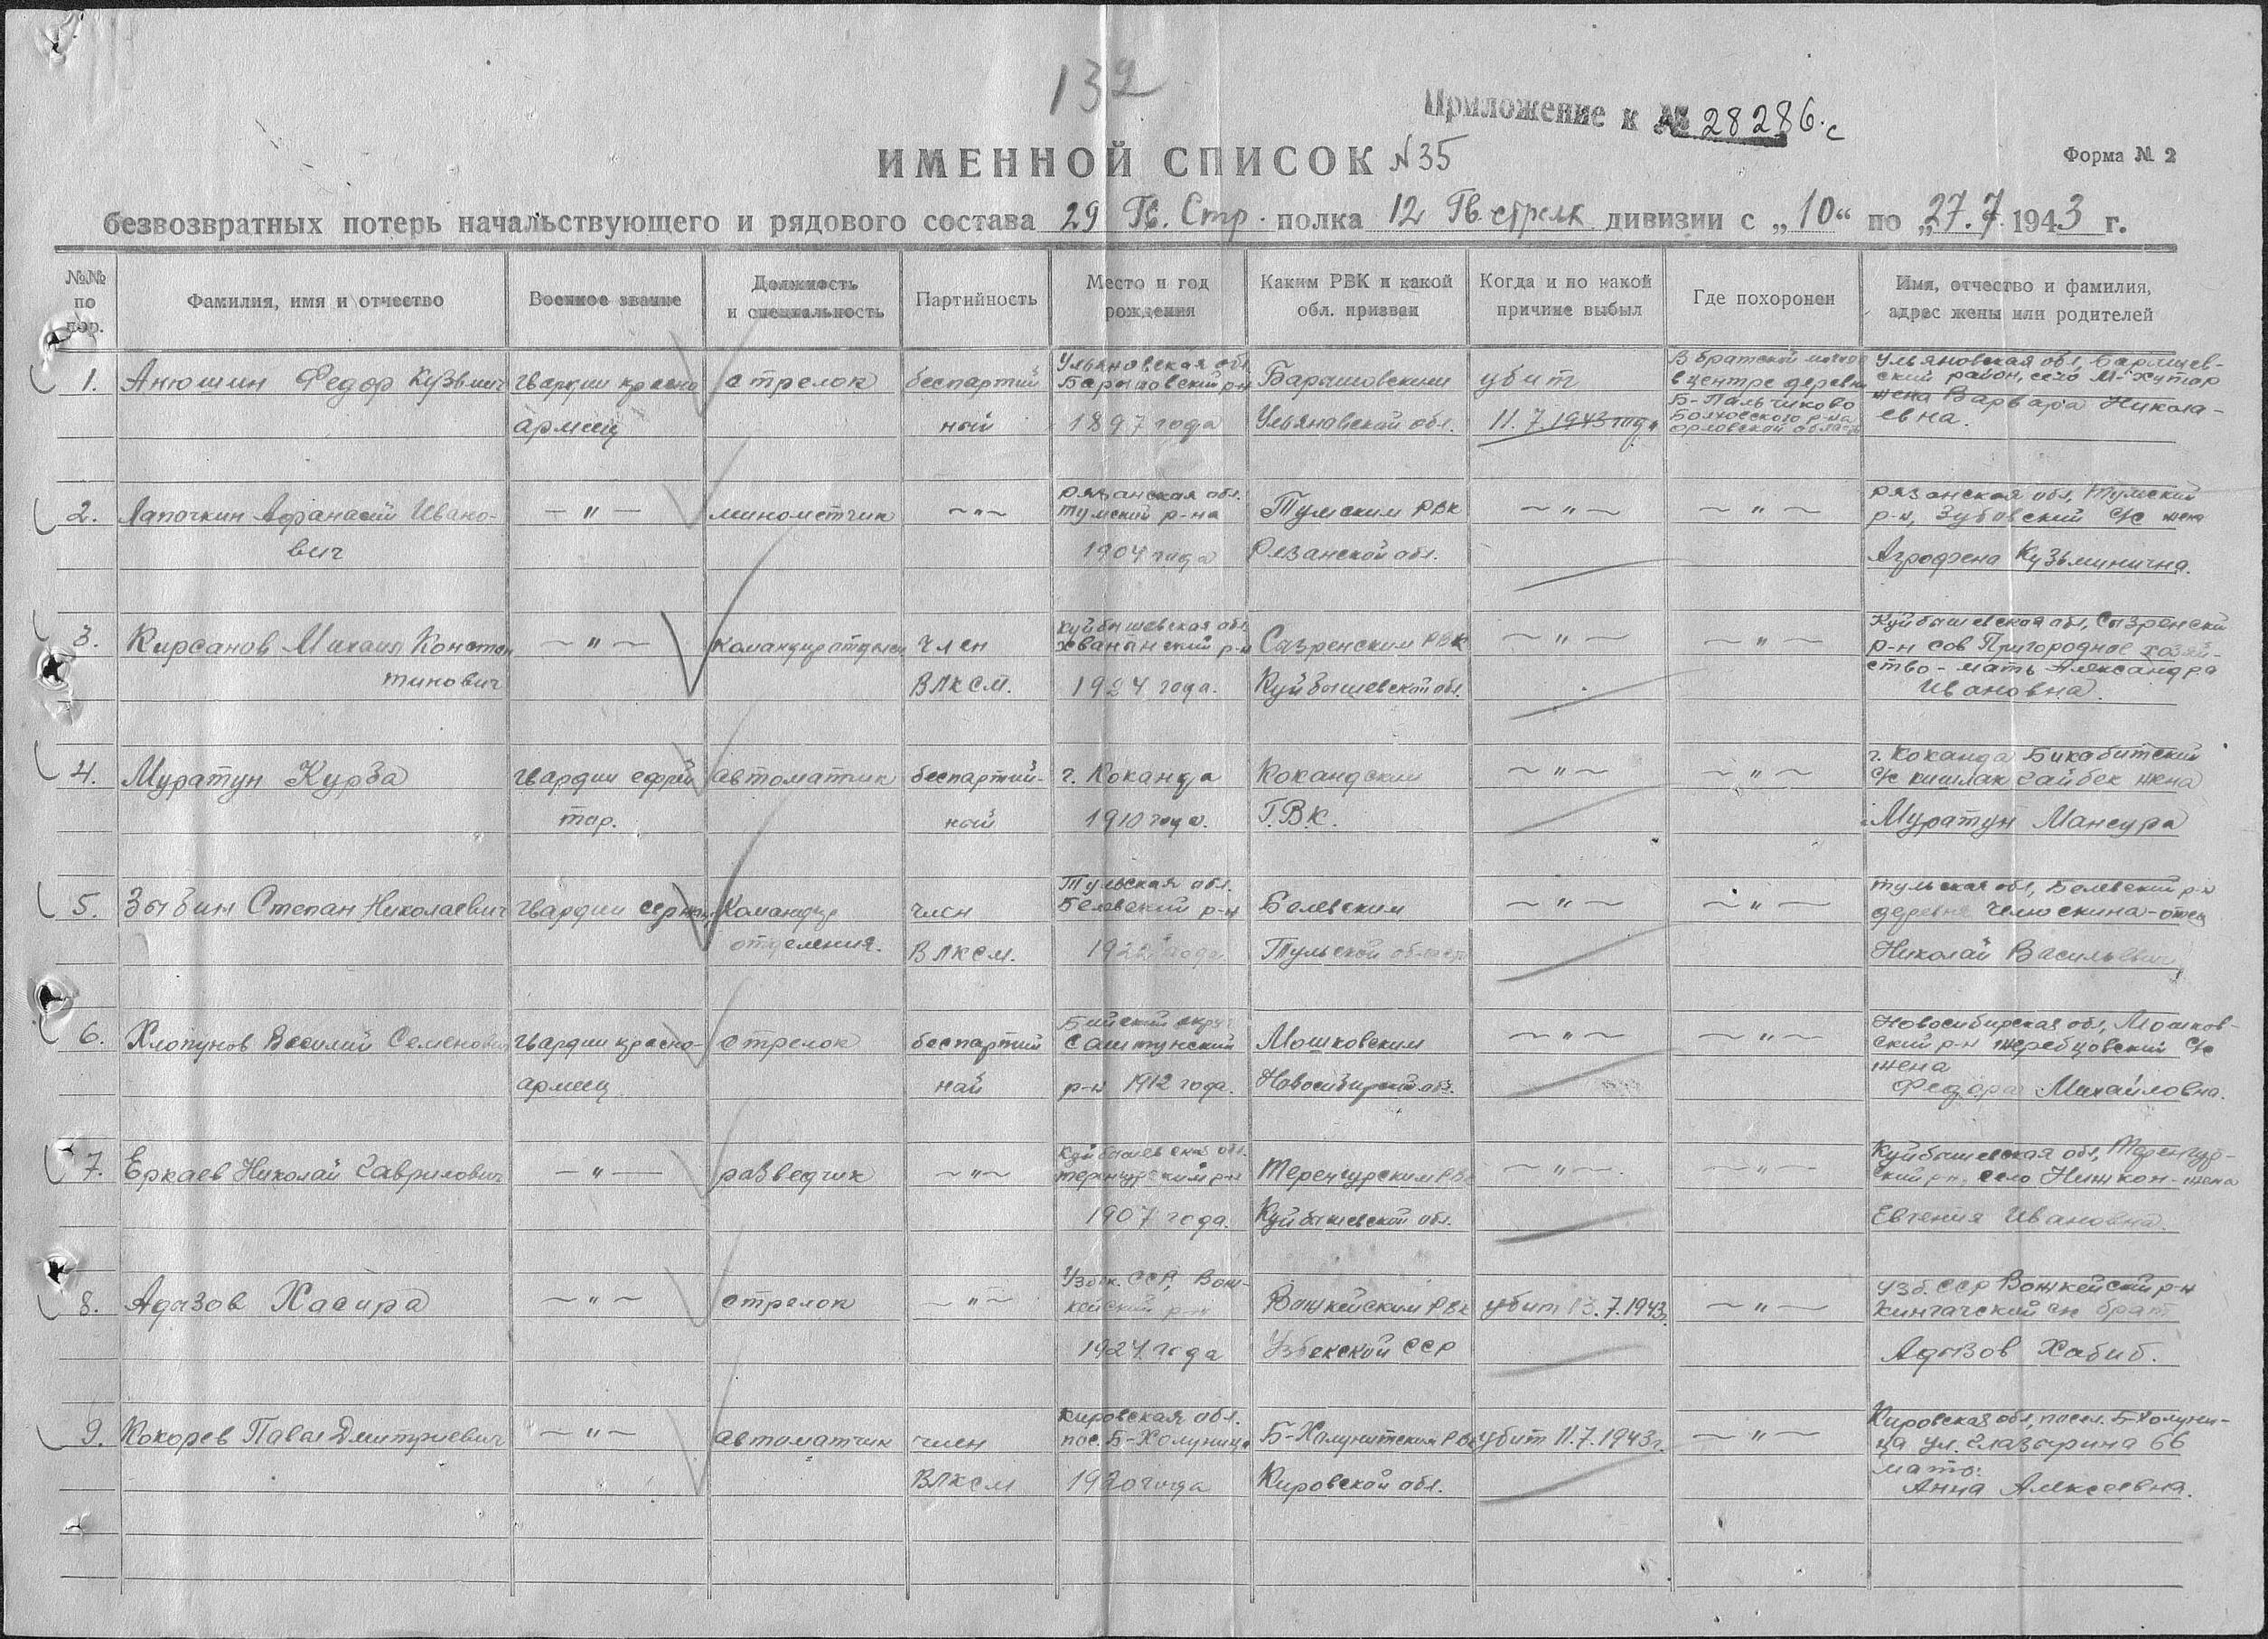 132
Приложение к № 28286.с
ИМЕННОЙ СПИСОК N35
Форма № 2
безвозвратных потерь начальствующего и рядового состава 29 Гв. Стр. полка 12 Гв. стрелк дивизии с „10“ по „27.7. 1943 г.
№№ по пор.
Фамилия, имя и отчество
Военное звание
Должность и специальность
Партийность
Место и год рождения
Каким РВК и какой обл. призван
Когда и по какой причине выбыл
Где похоронен
Имя, отчество и фамилия, адрес жены или родителей
1. Анюшин Федор Кузьмич
гвардии красно
армеец
стрелок
беспартий
ный
Ульяновская обл
Барышовский р-н
1897 года
Барышовским
Ульяновской обл.
убит
11.7.1943 года
В братской могиле
в центре деревни
Б-Пальчиково
Болховского р-на
орловской области
Ульяновская обл, Барышев-
ский район, село М-Хутор
жена Варвара Никола-
евна.
2. Лапочкин Афанасий Ивано-
вич
— " —
минометчик
~ " ~
Рязанская обл.
Тумский р-на
1904 года
Тумским РВК
Рязанской обл.
~ " ~
~ " ~
Рязанская обл, Тумский
р-н, Зубовский с/с жена
Агрофена Кузьминична.
3. Кирсанов Михаил Констан
тинович
~ " ~
командир отделен
Член
ВЛКСМ.
Куйбышевская обл
Хванынский р-н
1924 года.
Сызренским РВК
Куйбышевской обл.
~ " ~
~ " ~
Куйбышевская обл, Сызренский
р-н сов Пригородное хозяй-
ство - мать Александра
Ивановна.
4. Муратун Курба
гвардии ефрей
тор.
автоматчик
беспартий-
ный
г. Коканда
1910 года.
Кокандским
Г.В.К.
~ " ~
~ " ~
г. Коканда Бикабитский
с/с кишлак Сайбек жена
Муратун Мансура
5. Зыбин Степан Николаевич
гвардии сержант
Командир
отделения.
член
ВЛКСМ.
Тульская обл.
Белевский р-н
1922 года
Белевским
Тульской области
~ " ~
~ " ~
Тульская обл, Белевский р-н
деревня Челюскина - отец
Николай Васильевич
6. Хлопунов Василий Семенович
гвардии красно-
армеец
стрелок
беспартий
ный
Бийский округ
Салтунский
р-н 1912 года.
Мошковским
Новосибирской обл.
~ " ~
~ " ~
Новосибирская обл, Мошков-
ский р-н Жеребцовский с/с
жена
Федора Михайловна.
7. Еркаев Николай Гаврилович
— " —
разведчик
~ " ~
Куйбышевская обл.
Теренгурским р-н
1907 года.
Теренгурским РВК
Куйбышевской обл.
~ " ~
~ " ~
Куйбышевская обл, Теренгур-
ский р-н, село Нижкон - жена
Евгения Ивановна.
8. Адызов Хасира
~ " ~
стрелок
~ " ~
Узбек. ССР, Вож-
кейский р-н
1924 года
Вожкейским РВК
Узбекской ССР
убит 13.7.1943г.
~ " ~
Узб. ССР Вожкейский р-н
Кингачский с/с брат
Адызов Хабиб.
9. Кокорев Павел Дмитриевич
~ " ~
автоматчик
член
ВЛКСМ
Кировская обл.
пос. Б-Холуница
1920 года
Б-Холунитским РВК
Кировской обл.
убит 11.7.1943г.
~ " ~
Кировская обл, посел. Б-Холуни-
ца ул. Глазырина 66
мать:
Анна Алексеевна.